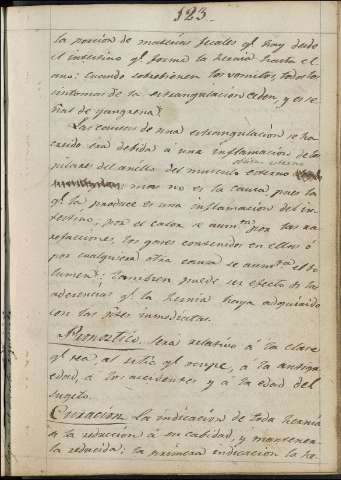 123.
la porcion de materias fecales q.l hay desde
el intestino q.l forma la hernia hasta el
ano: cuando sobrebienen los vomitos, todos los
sintomas de la estrangulacion ceden, y es se-
ñal de gangrena.
Las causas de una estrangulacion se ha
creido era debida á una inflamacion de los
pilares del anillo del musculo esterno
mas no es la causa pues la
q.l la produce es una inflamacion del in-
testino, por el calor se aum.tan por la ra-
refaccion, los gases contenidos en ellos ó
por cualquiera otra causa se aum.ta el bo-
lumen; tambien puede ser efecto de las
aderencias q.l la hernia haya adquirido
con las p.tes inmediatas.
Pronostico. Sera relativo á la clase
q.l sea, al sitio q.l ocupe, á la antigue
edad, á los accidentes y á la edad del
sugeto.
Curacion. La indicacion de toda hernia
es la reduccion á su cabidad, y mantener-
la reducida: la primera indicacion la ha-